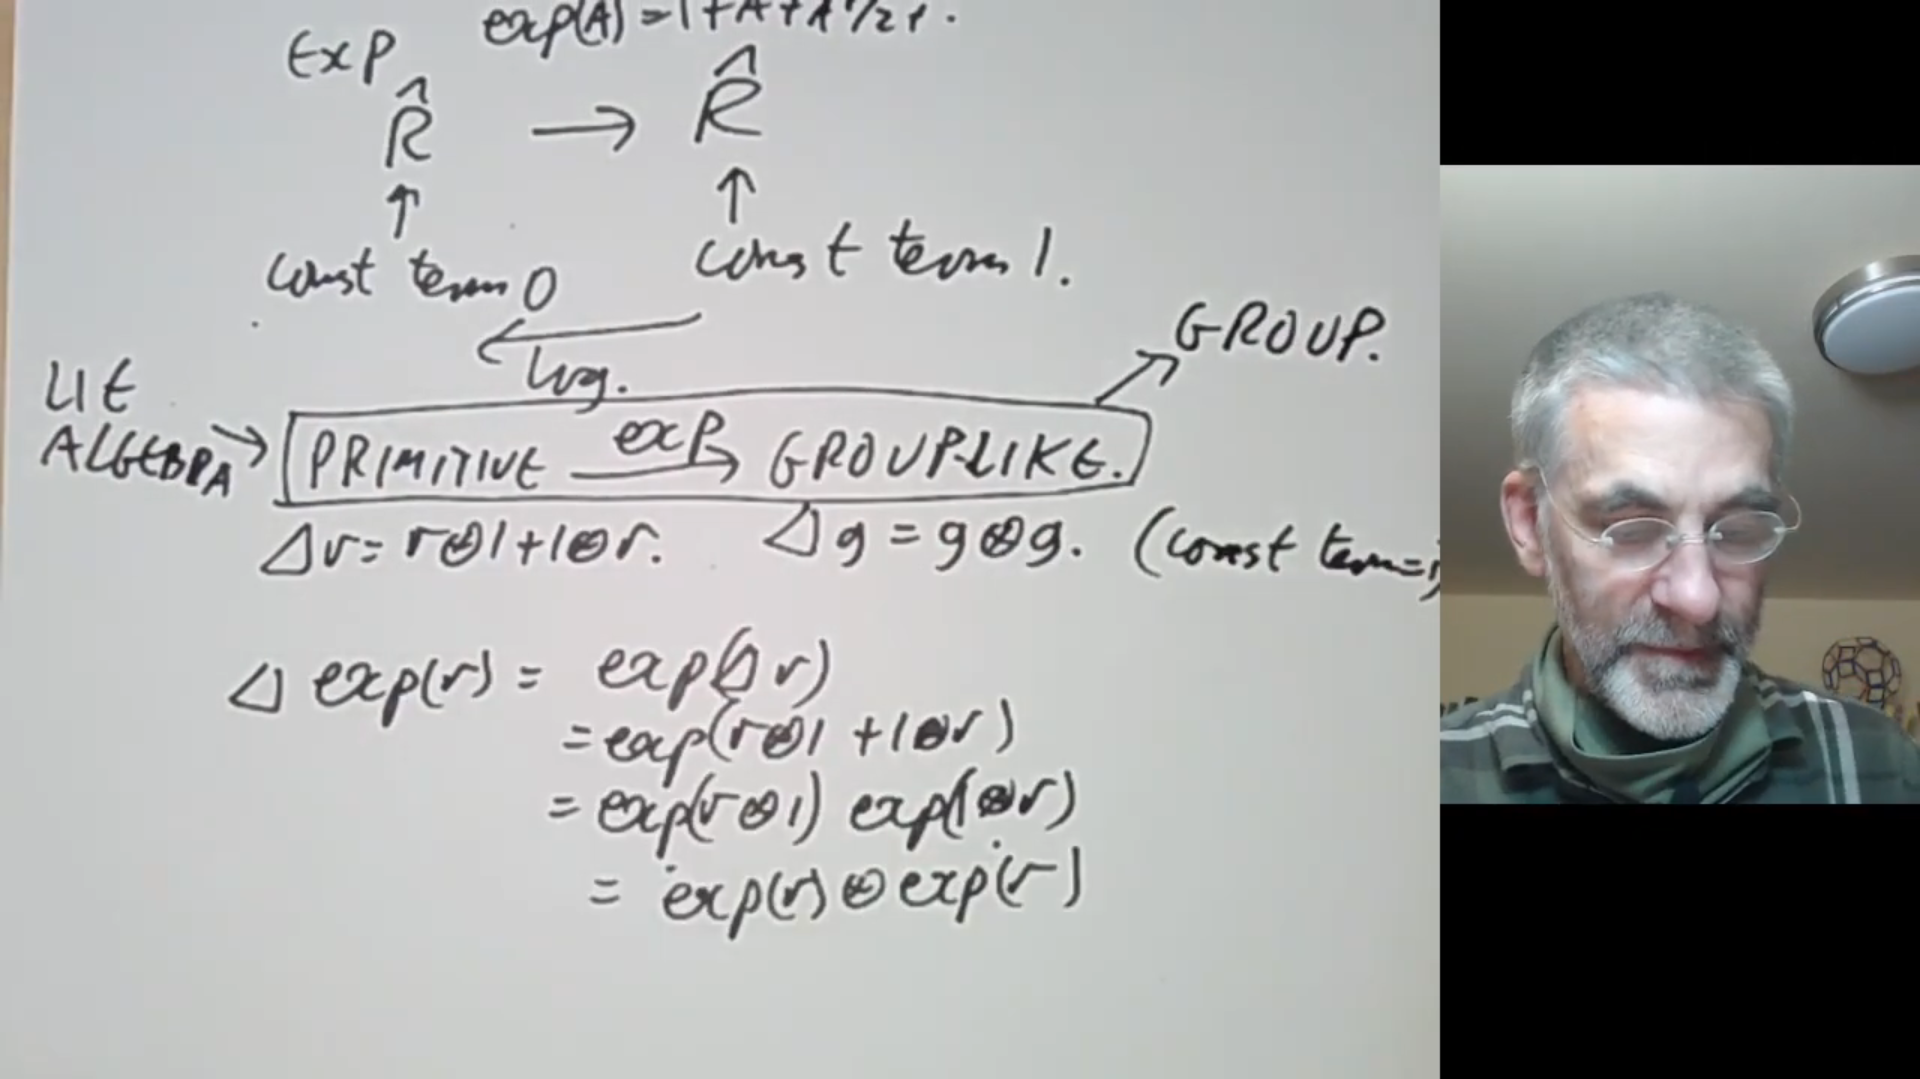 exp(A) = 1 + A + A²/2 + .
EXP
R̂ → R̂
↑ ↑
const term 0
const term 1.
log.
GROUP.
LIE
ALGEBRA → PRIMITIVE exp→ GROUP-LIKE.
Δr = r⊗1 + 1⊗r. Δg = g⊗g. (const term=1)
Δ exp(r) = exp(Δr)
= exp(r⊗1 + 1⊗r)
= exp(r⊗1) exp(1⊗r)
= exp(r) ⊗ exp(r)